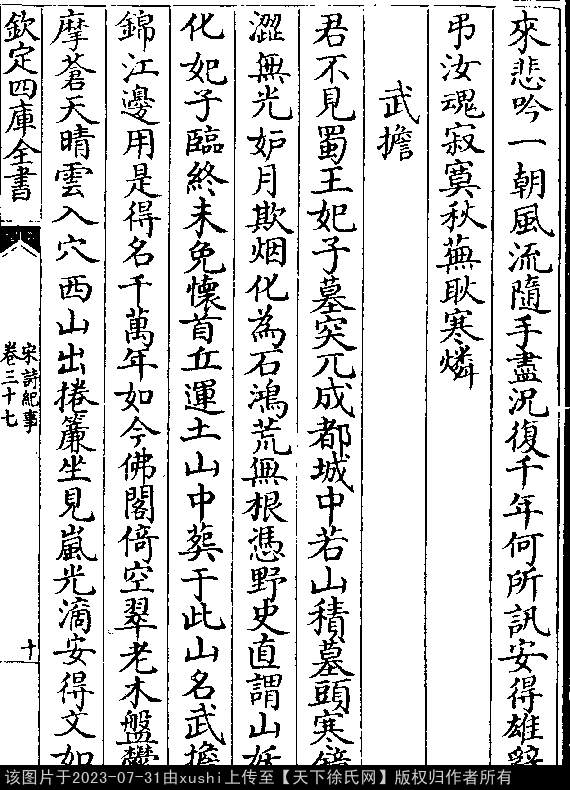 來悲吟一朝風流隨手盡況復千年何所訊安得雄
弔汝魂寂寞秋蕪耿寒燐
武擔
君不見蜀王妃子墓突兀成都城中若山積墓頭寒
澀無光妒月欺烟化為石鴻荒無根憑野史直謂山
化妃子臨終未免懷首丘運土山中葬于此山名武擔
錦江邊用是得名千萬年如今佛閣倚空翠老木盤
摩蒼天晴雲入穴西山出捲簾坐見嵐光滴安得文如
欽定四庫全書
宋詩紀事
卷三十七
十
该图片于2023-07-31由xushi上传至【天下徐氏网】版权归作者所有